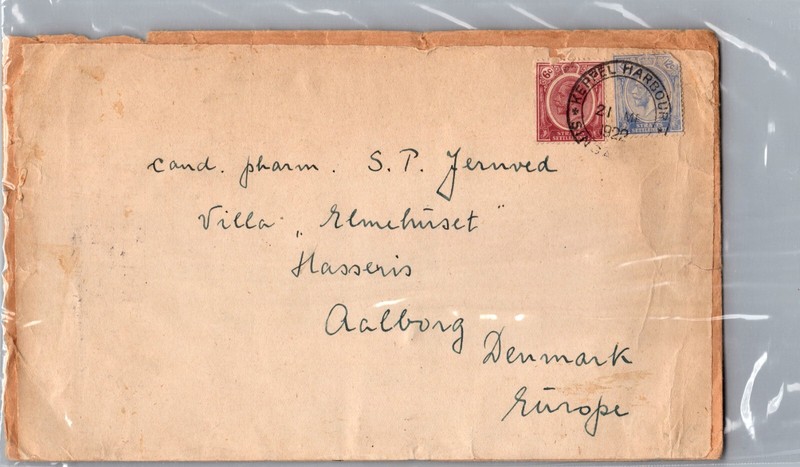 6c
KEPPEL HARBOUR
21
1922
STRAITS
SETTLEMENTS
cand. pharm. S. P. Jernved
Villa „Elmehuset"
Hasseris
Aalborg
Denmark
Europe